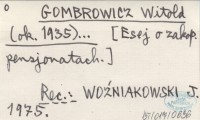 o GOMBROWICZ Witold
(ok. 1935)... [Esej o zakop.
pensjonatach.]
Rec.: WOŹNIAKOWSKI J.
1975.